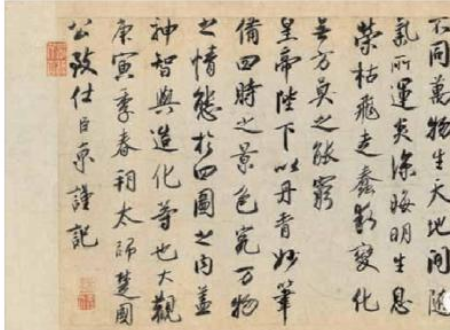 不同萬物生天地間隨
氣所運炎涼晦明生息
榮枯飛走蠢動變化
無方莫之能窮
皇帝陛下以丹青妙筆
備四時之景色究万物
之情態於四圖之内蓋
神智與造化等也大觀
庚寅季春朔太師楚國
公致仕臣京謹記